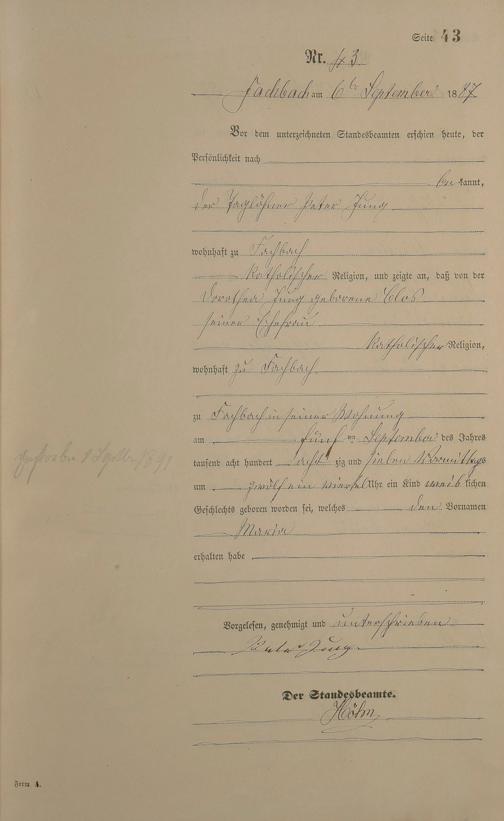 Seite 43
Nr. 43
Fachbach am 6ten September 1887
Vor dem unterzeichneten Standesbeamten erschien heute, der
Persönlichkeit nach
be kannt,
der Taglöhner Peter Jung
wohnhaft zu Fachbach
katholischer Religion, und zeigte an, daß von der
Dorothea Jung geborene Clos
seiner Ehefrau
katholischer Religion,
wohnhaft zu Fachbach
zu Fachbach in seiner Wohnung
am fünf ten September des Jahres
tausend acht hundert acht zig und sieben Vormittags
um zwölf ein viertel Uhr ein Kind weib lichen
Geschlechts geboren worden sei, welches den Vornamen
Maria
erhalten habe
Vorgelesen, genehmigt und unterschrieben
Peter Jung
Der Standesbeamte.
Höhn
gestorben 1891
Form A.